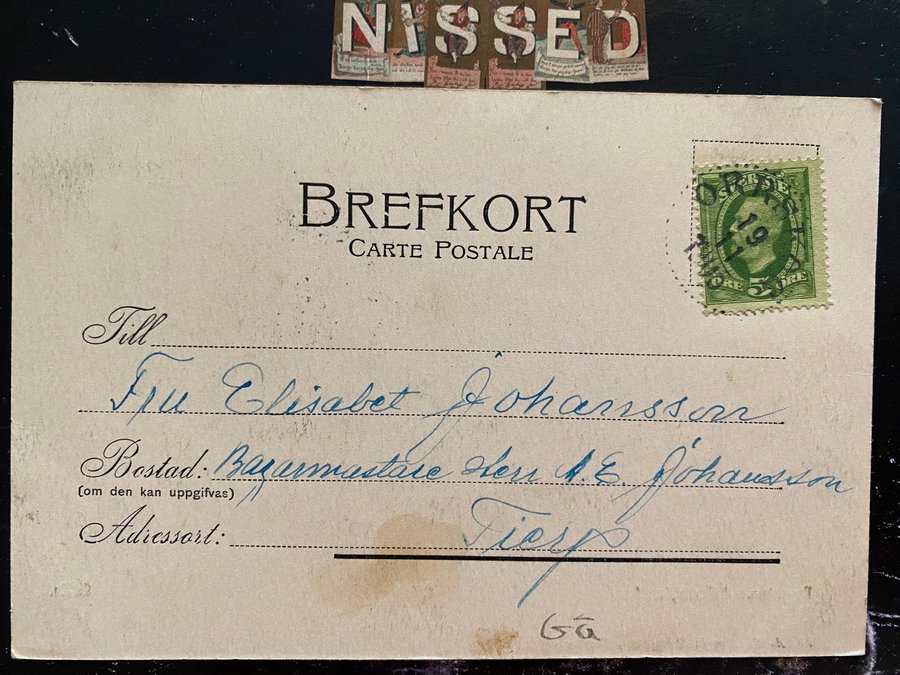 NISSED
BREFKORT
CARTE POSTALE
SVERIGE
19
11
5
ÖRE ÖRE
Till
Fru Elisabet Johansson
Bostad: Bagarmastare Herr A. E. Johansson
(om den kan uppgifvas)
Adressort: Tierp
Gä